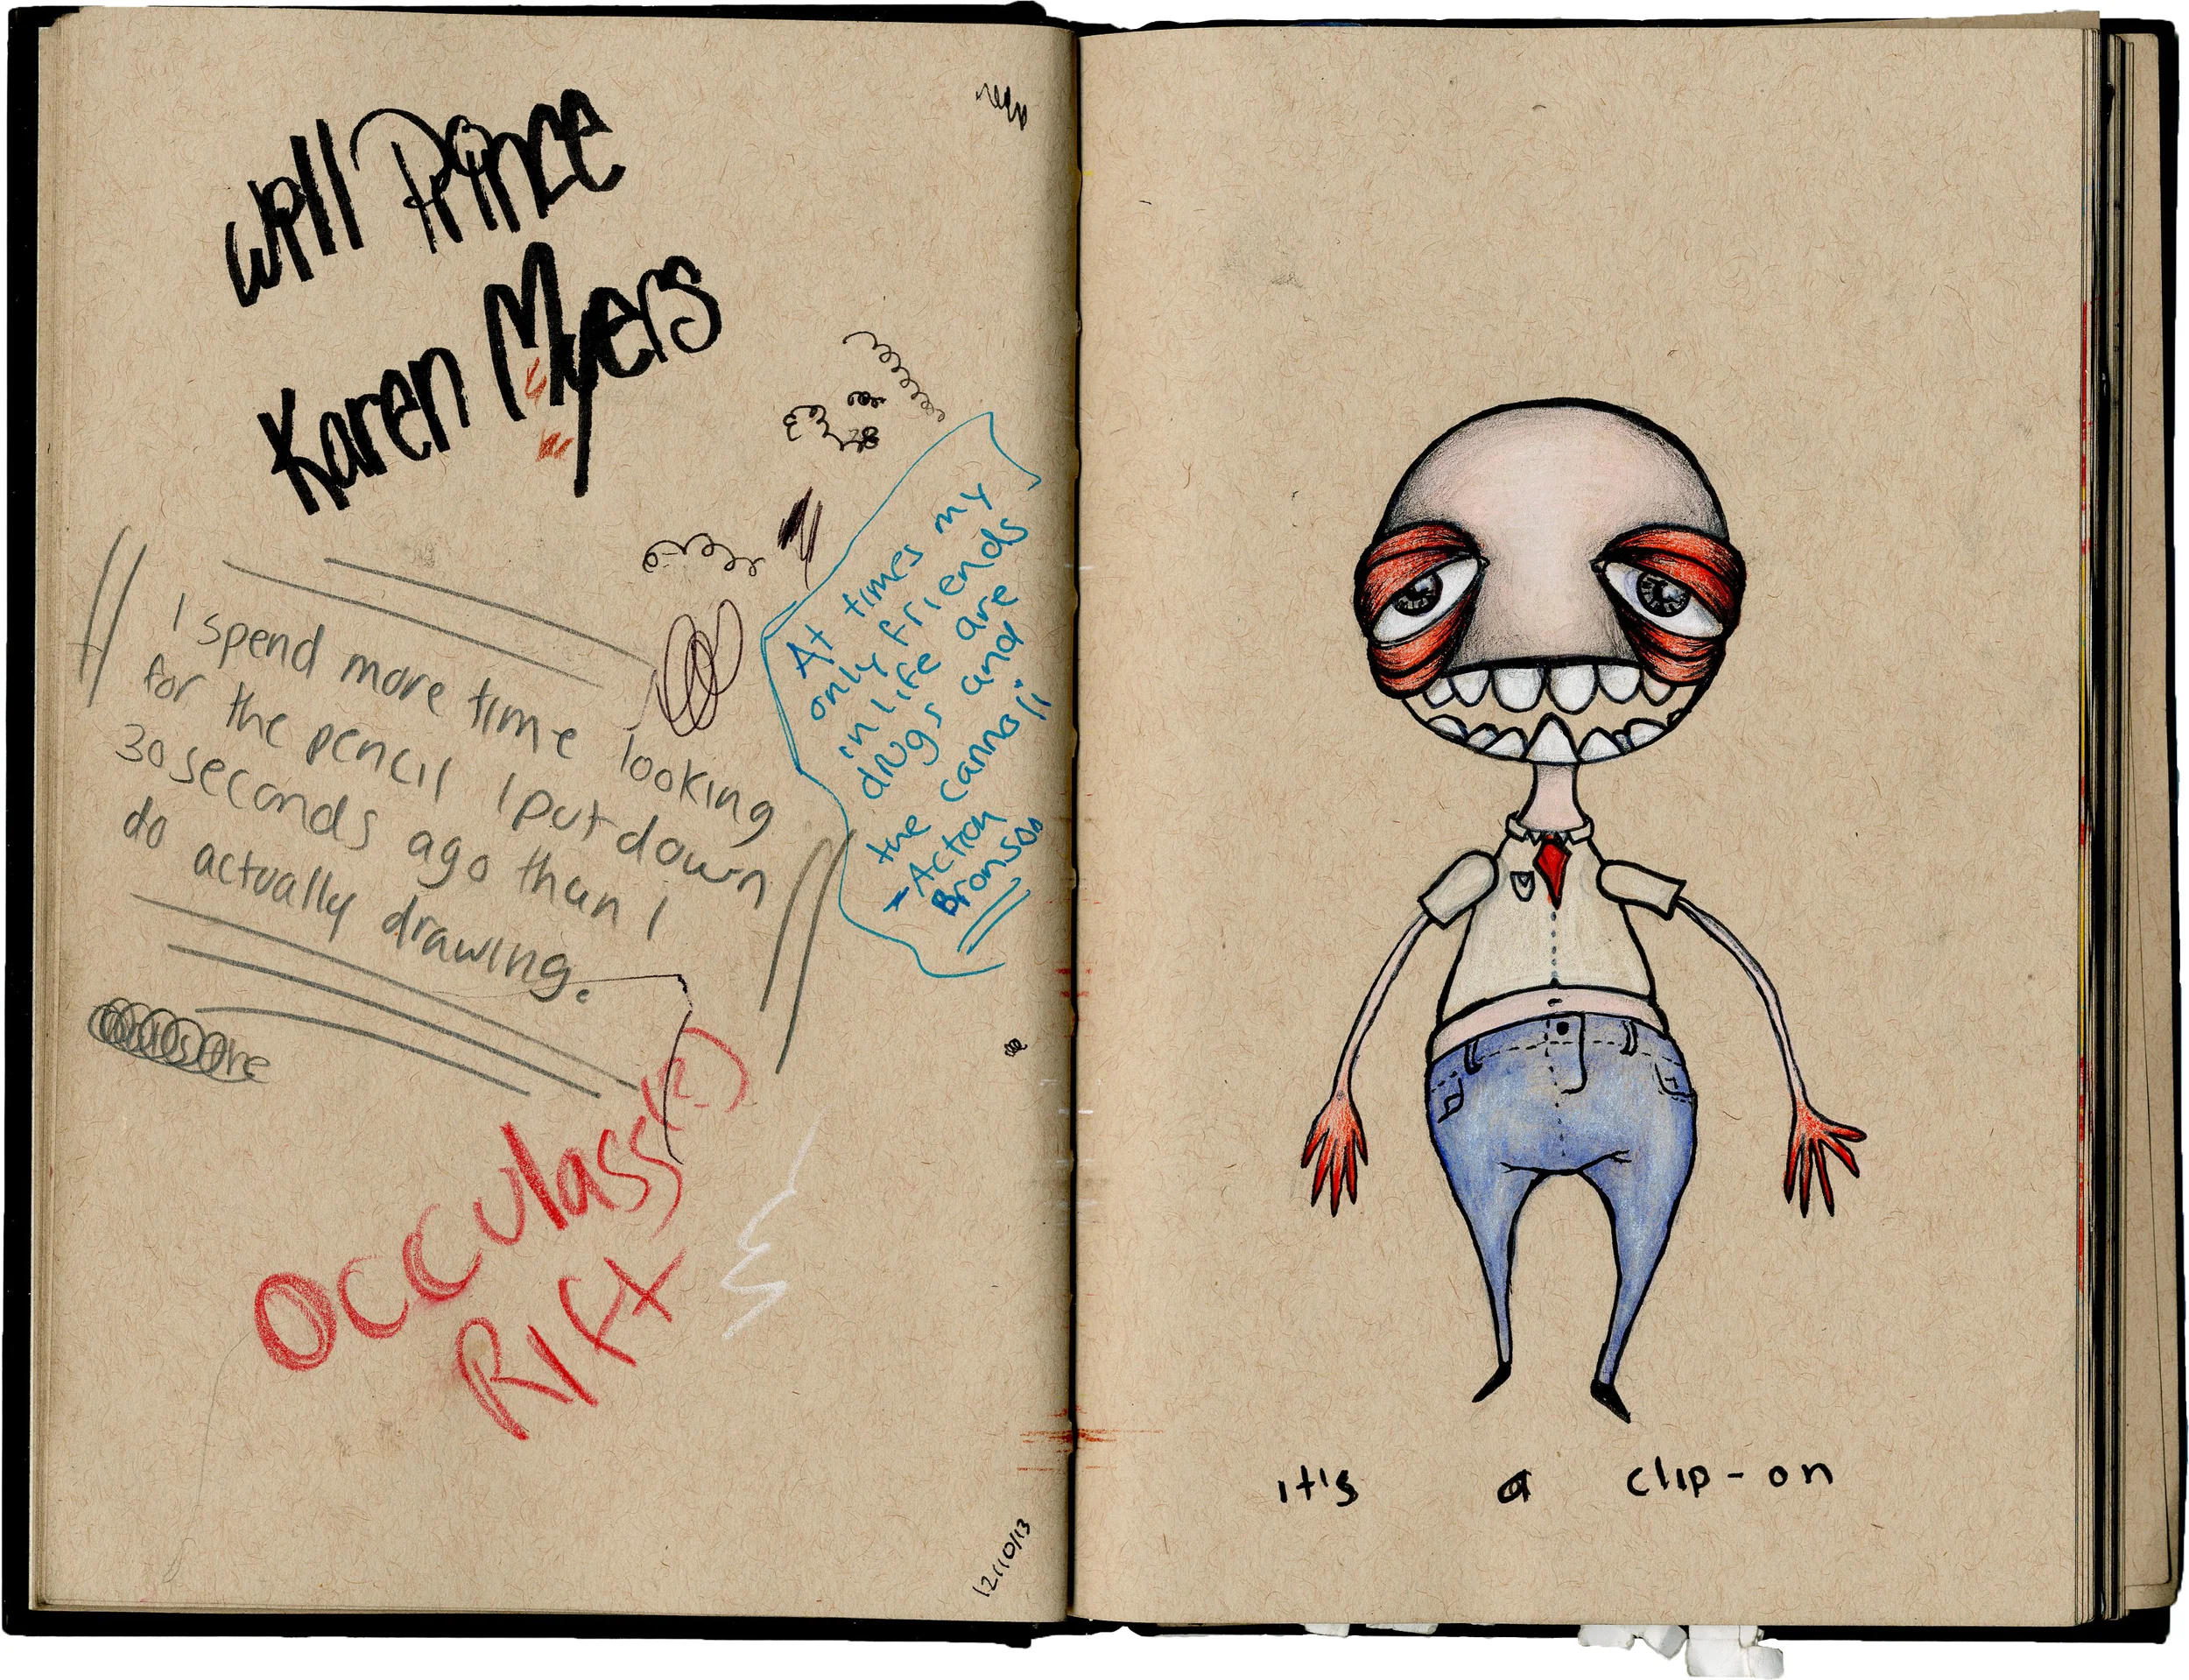 Will Prince
Karen Myers
I spend more time looking
for the pencil I put down
30 seconds ago than I
do actually drawing.
At times my
only friends
in life are
drugs and
the cannoji
- Action
Bronson
Occulass(?)
Rift
12/10/13
it's a clip-on